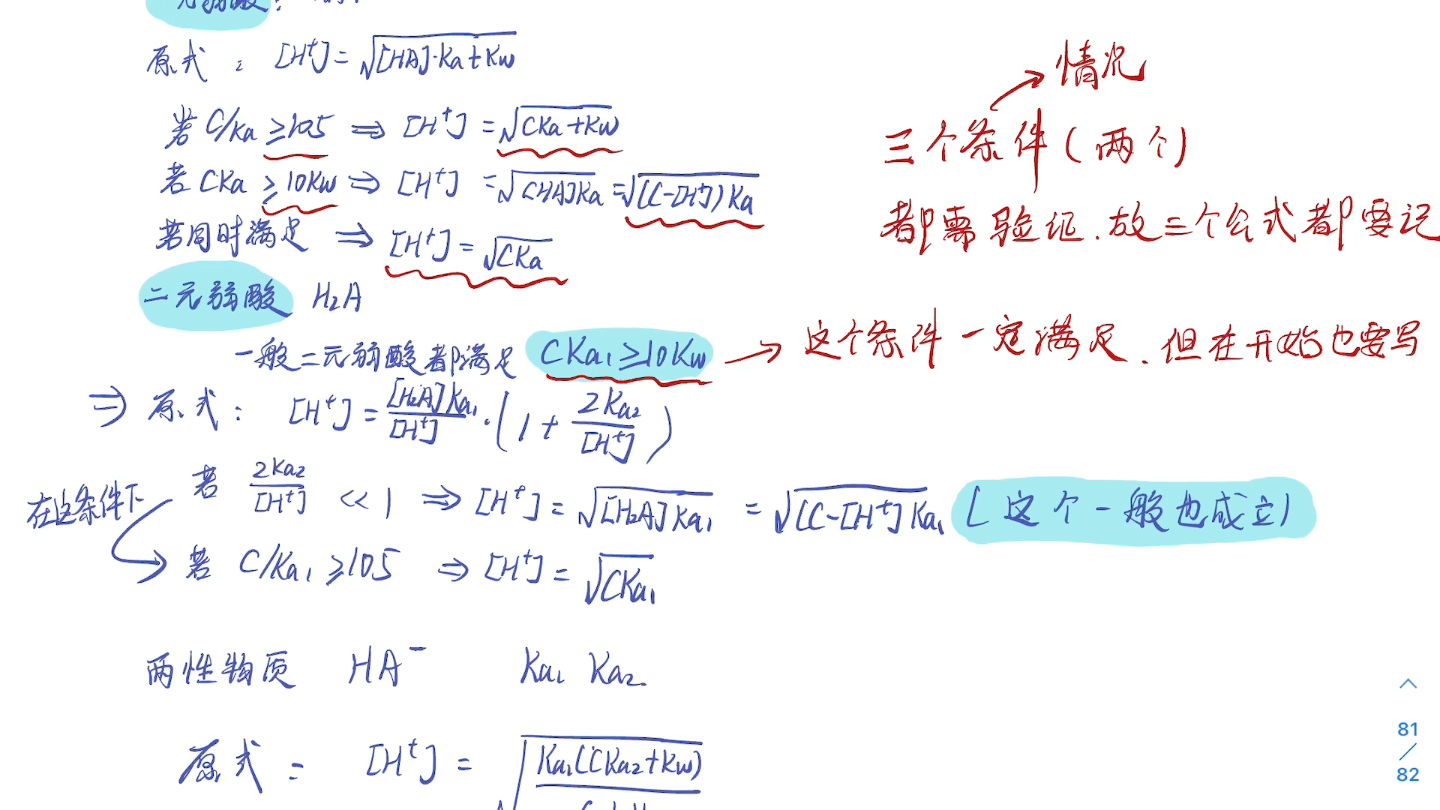 一元弱酸：
原式： [H⁺]=√([HA]·Ka+Kw)
若 C/Ka ≥105 ⇒ [H⁺] =√(CKa+Kw)
若 CKa ≥10Kw ⇒ [H⁺] =√([HA]Ka)=√((C-[H⁺])Ka)
若同时满足 ⇒ [H⁺]=√(CKa)
情况
三个条件(两个)
都需验证.故三个公式都要记
二元弱酸 H₂A
一般二元弱酸都满足 CKa₁≥10Kw → 这个条件一定满足.但在开始也要写
⇒ 原式： [H⁺]=[H₂A]Ka₁/[H⁺]·(1+2Ka₂/[H⁺])
在这条件下 若 2Ka₂/[H⁺] << 1 ⇒ [H⁺]=√([H₂A]Ka₁) =√((C-[H⁺]Ka₁) (这个一般也成立)
若 C/Ka₁ ≥105 ⇒ [H⁺]=√(CKa₁)
两性物质 HA⁻ Ka₁ Ka₂.
原式： [H⁺]= √(Ka₁(CKa₂+Kw)
81
/
82